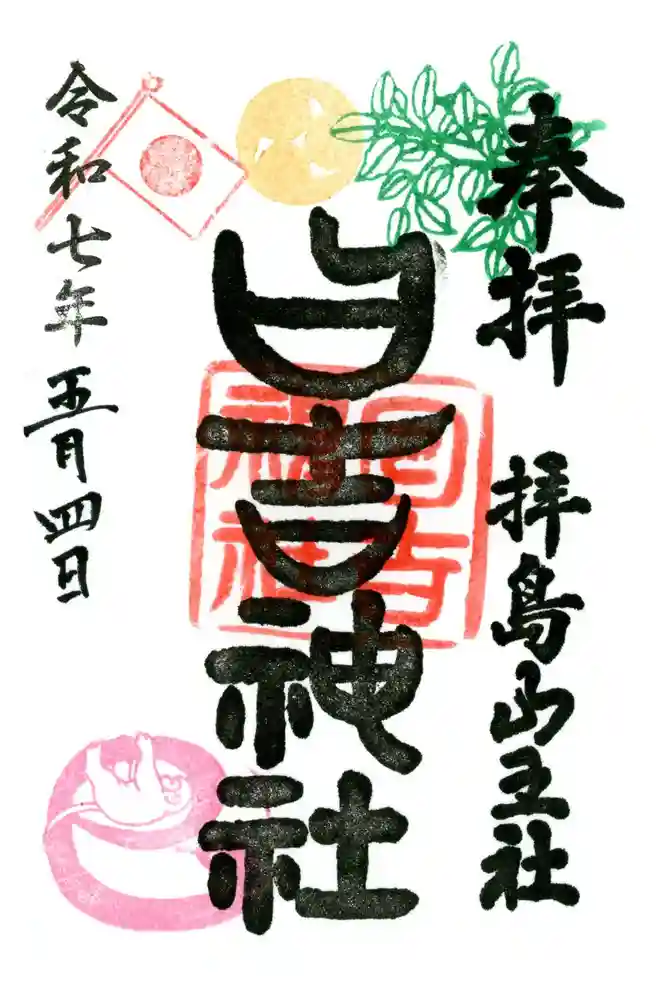 奉拝
拝島山王社
日吉神社
日吉神社
令和七年五月四日